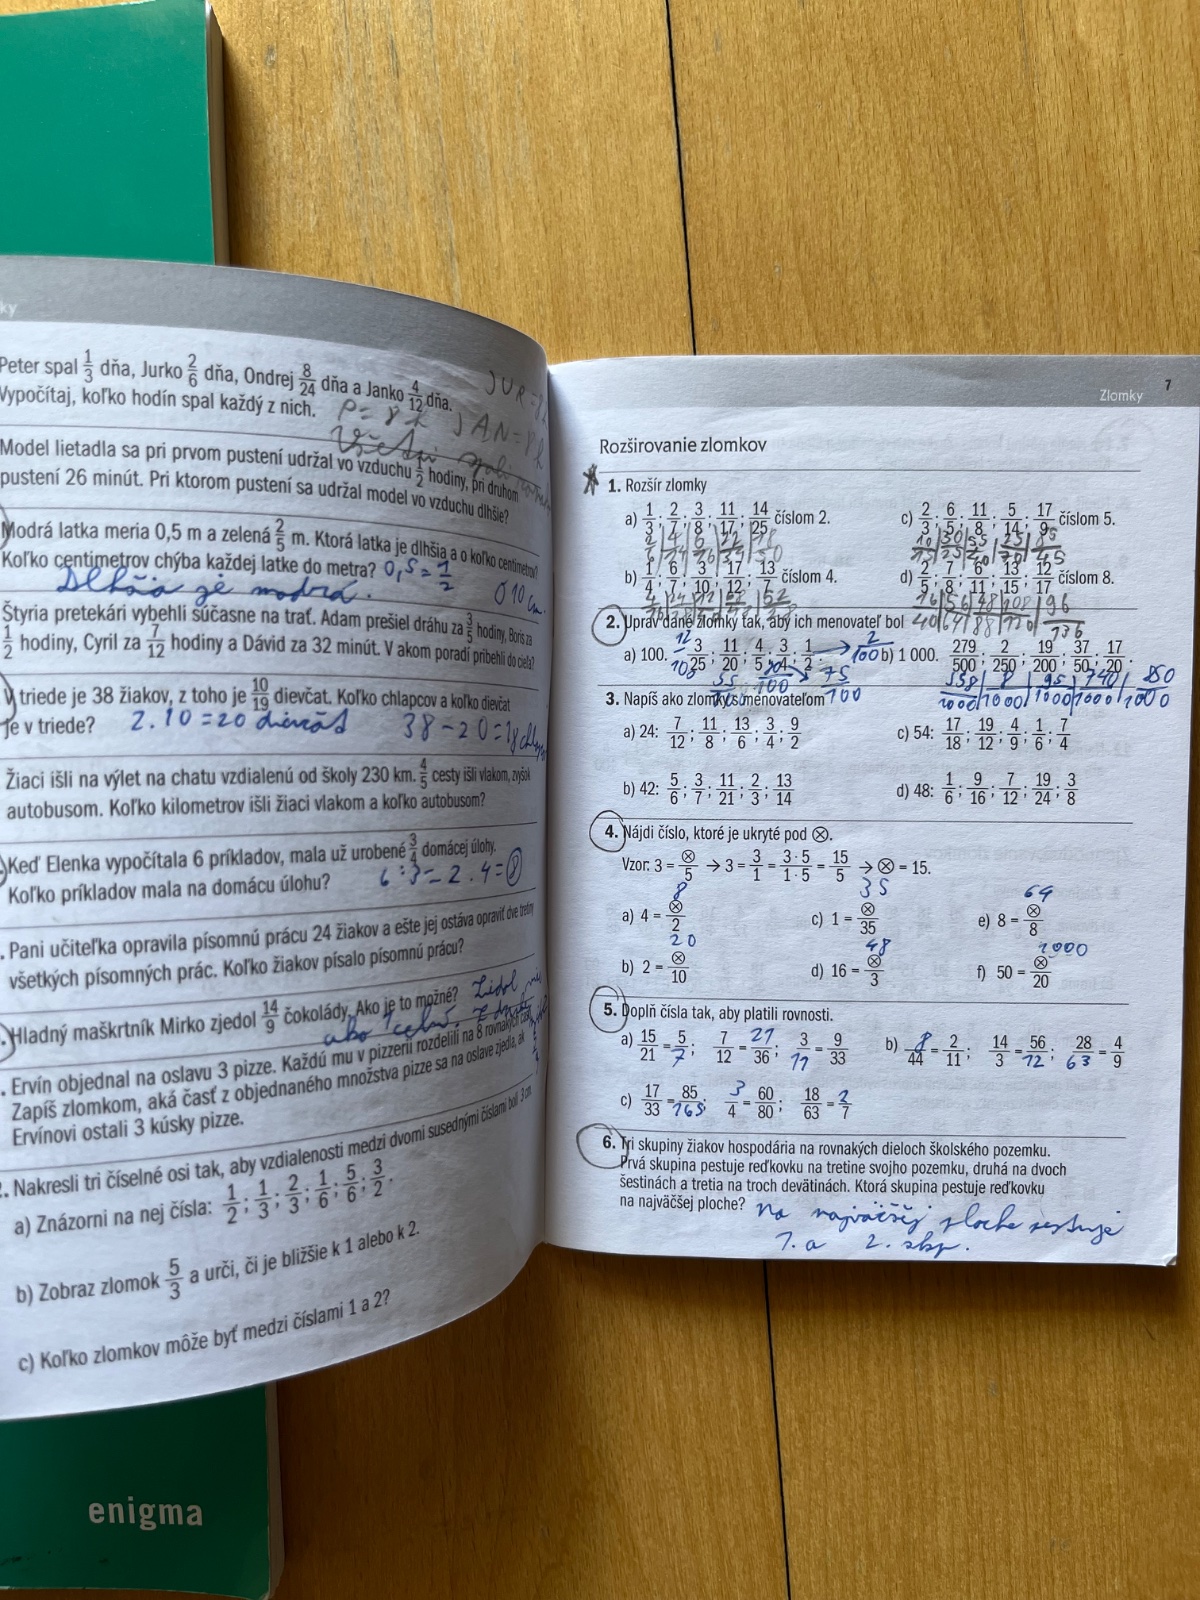 ky
Peter spal 1/3 dňa, Jurko 2/6 dňa, Ondrej 8/24 dňa a Janko 4/12 dňa.
Vypočítaj, koľko hodín spal každý z nich.
P = 8 h
JAN = 8 h
Model lietadla sa pri prvom pustení udržal vo vzduchu 1/2 hodiny, pri druhom
pustení 26 minút. Pri ktorom pustení sa udržal model vo vzduchu dlhšie?
Modrá latka meria 0,5 m a zelená 2/5 m. Ktorá latka je dlhšia a o koľko centimetrov?
Koľko centimetrov chýba každej latke do metra? 0,5 = 1/2
Dlhšia je modrá. O 10 cm.
Štyria pretekári vybehli súčasne na trať. Adam prešiel dráhu za 3/5 hodiny, Boris za
1/2 hodiny, Cyril za 7/12 hodiny a Dávid za 32 minút. V akom poradí pribehli do cieľa?
V triede je 38 žiakov, z toho je 10/19 dievčat. Koľko chlapcov a koľko dievčat
je v triede? 2.10 = 20 dievčat 38 - 20 = 18
Žiaci išli na výlet na chatu vzdialenú od školy 230 km. 4/5 cesty išli vlakom, zvyšok
autobusom. Koľko kilometrov išli žiaci vlakom a koľko autobusom?
Keď Elenka vypočítala 6 príkladov, mala už urobené 3/4 domácej úlohy.
Koľko príkladov mala na domácu úlohu? 6 : 3 = 2 . 4 = 8
. Pani učiteľka opravila písomnú prácu 24 žiakov a ešte jej ostáva opraviť dve tretiny
všetkých písomných prác. Koľko žiakov písalo písomnú prácu?
Hladný maškrtník Mirko zjedol 14/9 čokolády. Ako je to možné?
. Ervín objednal na oslavu 3 pizze. Každú mu v pizzerii rozdelili na 8 rovnakých častí.
Zapíš zlomkom, aká časť z objednaného množstva pizze sa na oslave zjedla, ak
Ervínovi ostali 3 kúsky pizze.
. Nakresli tri číselné osi tak, aby vzdialenosti medzi dvomi susednými číslami boli 3 cm.
a) Znázorni na nej čísla: 1/2; 1/3; 2/3; 1/6; 5/6; 3/2.
b) Zobraz zlomok 5/3 a urči, či je bližšie k 1 alebo k 2.
c) Koľko zlomkov môže byť medzi číslami 1 a 2?
enigma
7
Zlomky
Rozširovanie zlomkov
1. Rozšír zlomky
a) 1/3; 2/7; 3/8; 11/17; 14/25 číslom 2.
2/6 4/14 6/16 22/34 28/50
c) 2/3; 6/5; 11/8; 5/14; 17/9 číslom 5.
10/15 30/25 55/40 25/70 85/45
b) 1/4; 6/7; 3/10; 17/12; 13/7 číslom 4.
d) 2/5; 7/8; 6/11; 13/15; 12/17 číslom 8.
16/40 56/64 48/88 96/136
2. Uprav dané zlomky tak, aby ich menovateľ bol
a) 100. 3/25; 11/20; 4/5; 3/4; 1/2.
b) 1 000. 279/500; 2/250; 19/200; 37/50; 17/20.
75/100
558/1000 8/1000 95/1000 740/1000 850/1000
3. Napíš ako zlomky s menovateľom
a) 24: 7/12; 11/8; 13/6; 3/4; 9/2
c) 54: 17/18; 19/12; 4/9; 1/6; 7/4
b) 42: 5/6; 3/7; 11/21; 2/3; 13/14
d) 48: 1/6; 9/16; 7/12; 19/24; 3/8
4. Nájdi číslo, ktoré je ukryté pod ⊗.
Vzor: 3 = ⊗/5 → 3 = 3/1 = 3·5/1·5 = 15/5 → ⊗ = 15.
8 35 64
a) 4 = ⊗/2 c) 1 = ⊗/35 e) 8 = ⊗/8
20 48 1000
b) 2 = ⊗/10 d) 16 = ⊗/3 f) 50 = ⊗/20
5. Doplň čísla tak, aby platili rovnosti.
a) 15/21 = 5/7; 7/12 = 21/36; 3/11 = 9/33 b) 8/44 = 2/11; 14/3 = 56/12; 28/63 = 4/9
c) 17/33 = 85/165; 3/4 = 60/80; 18/63 = 2/7
6. Tri skupiny žiakov hospodária na rovnakých dieloch školského pozemku.
Prvá skupina pestuje reďkovku na tretine svojho pozemku, druhá na dvoch
šestinách a tretia na troch devätinách. Ktorá skupina pestuje reďkovku
na najväčšej ploche? Na najväčšej ploche pestuje
1. a 2. skp.